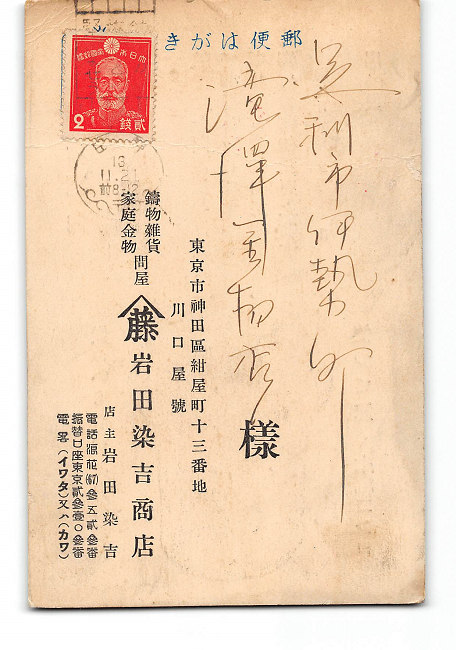 郵便はがき
足利市伊勢町
滝澤金物店
樣
東京市神田區紺屋町十三番地
川口屋號
鑄物雜貨
家庭金物
問屋
藤 岩田染吉商店
店主 岩田染吉
電話浪花(67)參五貳參番
振替口座東京貳參壹〇參番
電畧(イワタ)又ハ(カワ)
2 錢貳
16
11.21
前8-12